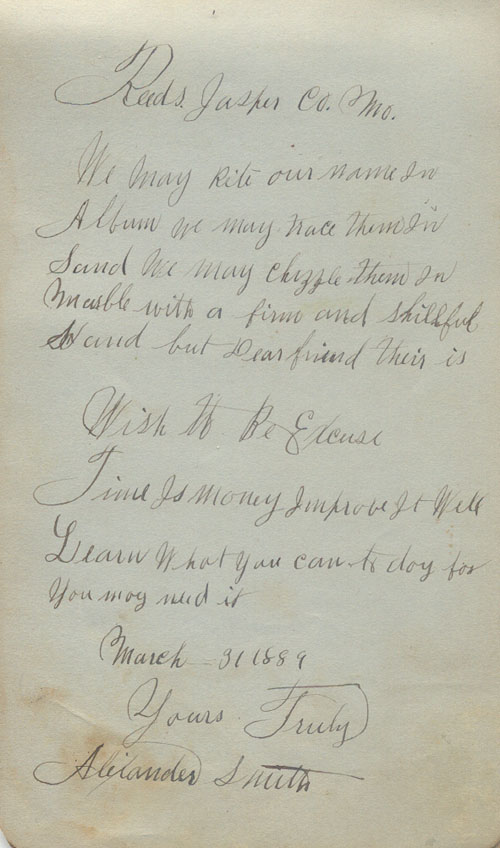 Reeds. Jasper Co. Mo.
We May Rite our name In
Album we may trace them In
Sand We may chizzle them In
Marble with a firm and Skillful
Hand but Dear friend their is
Wish to Be Excuse
Time Is money Improve It Well
Learn What You can to day for
You may need it
March 31 1889
Yours Truly
Alexander Smith